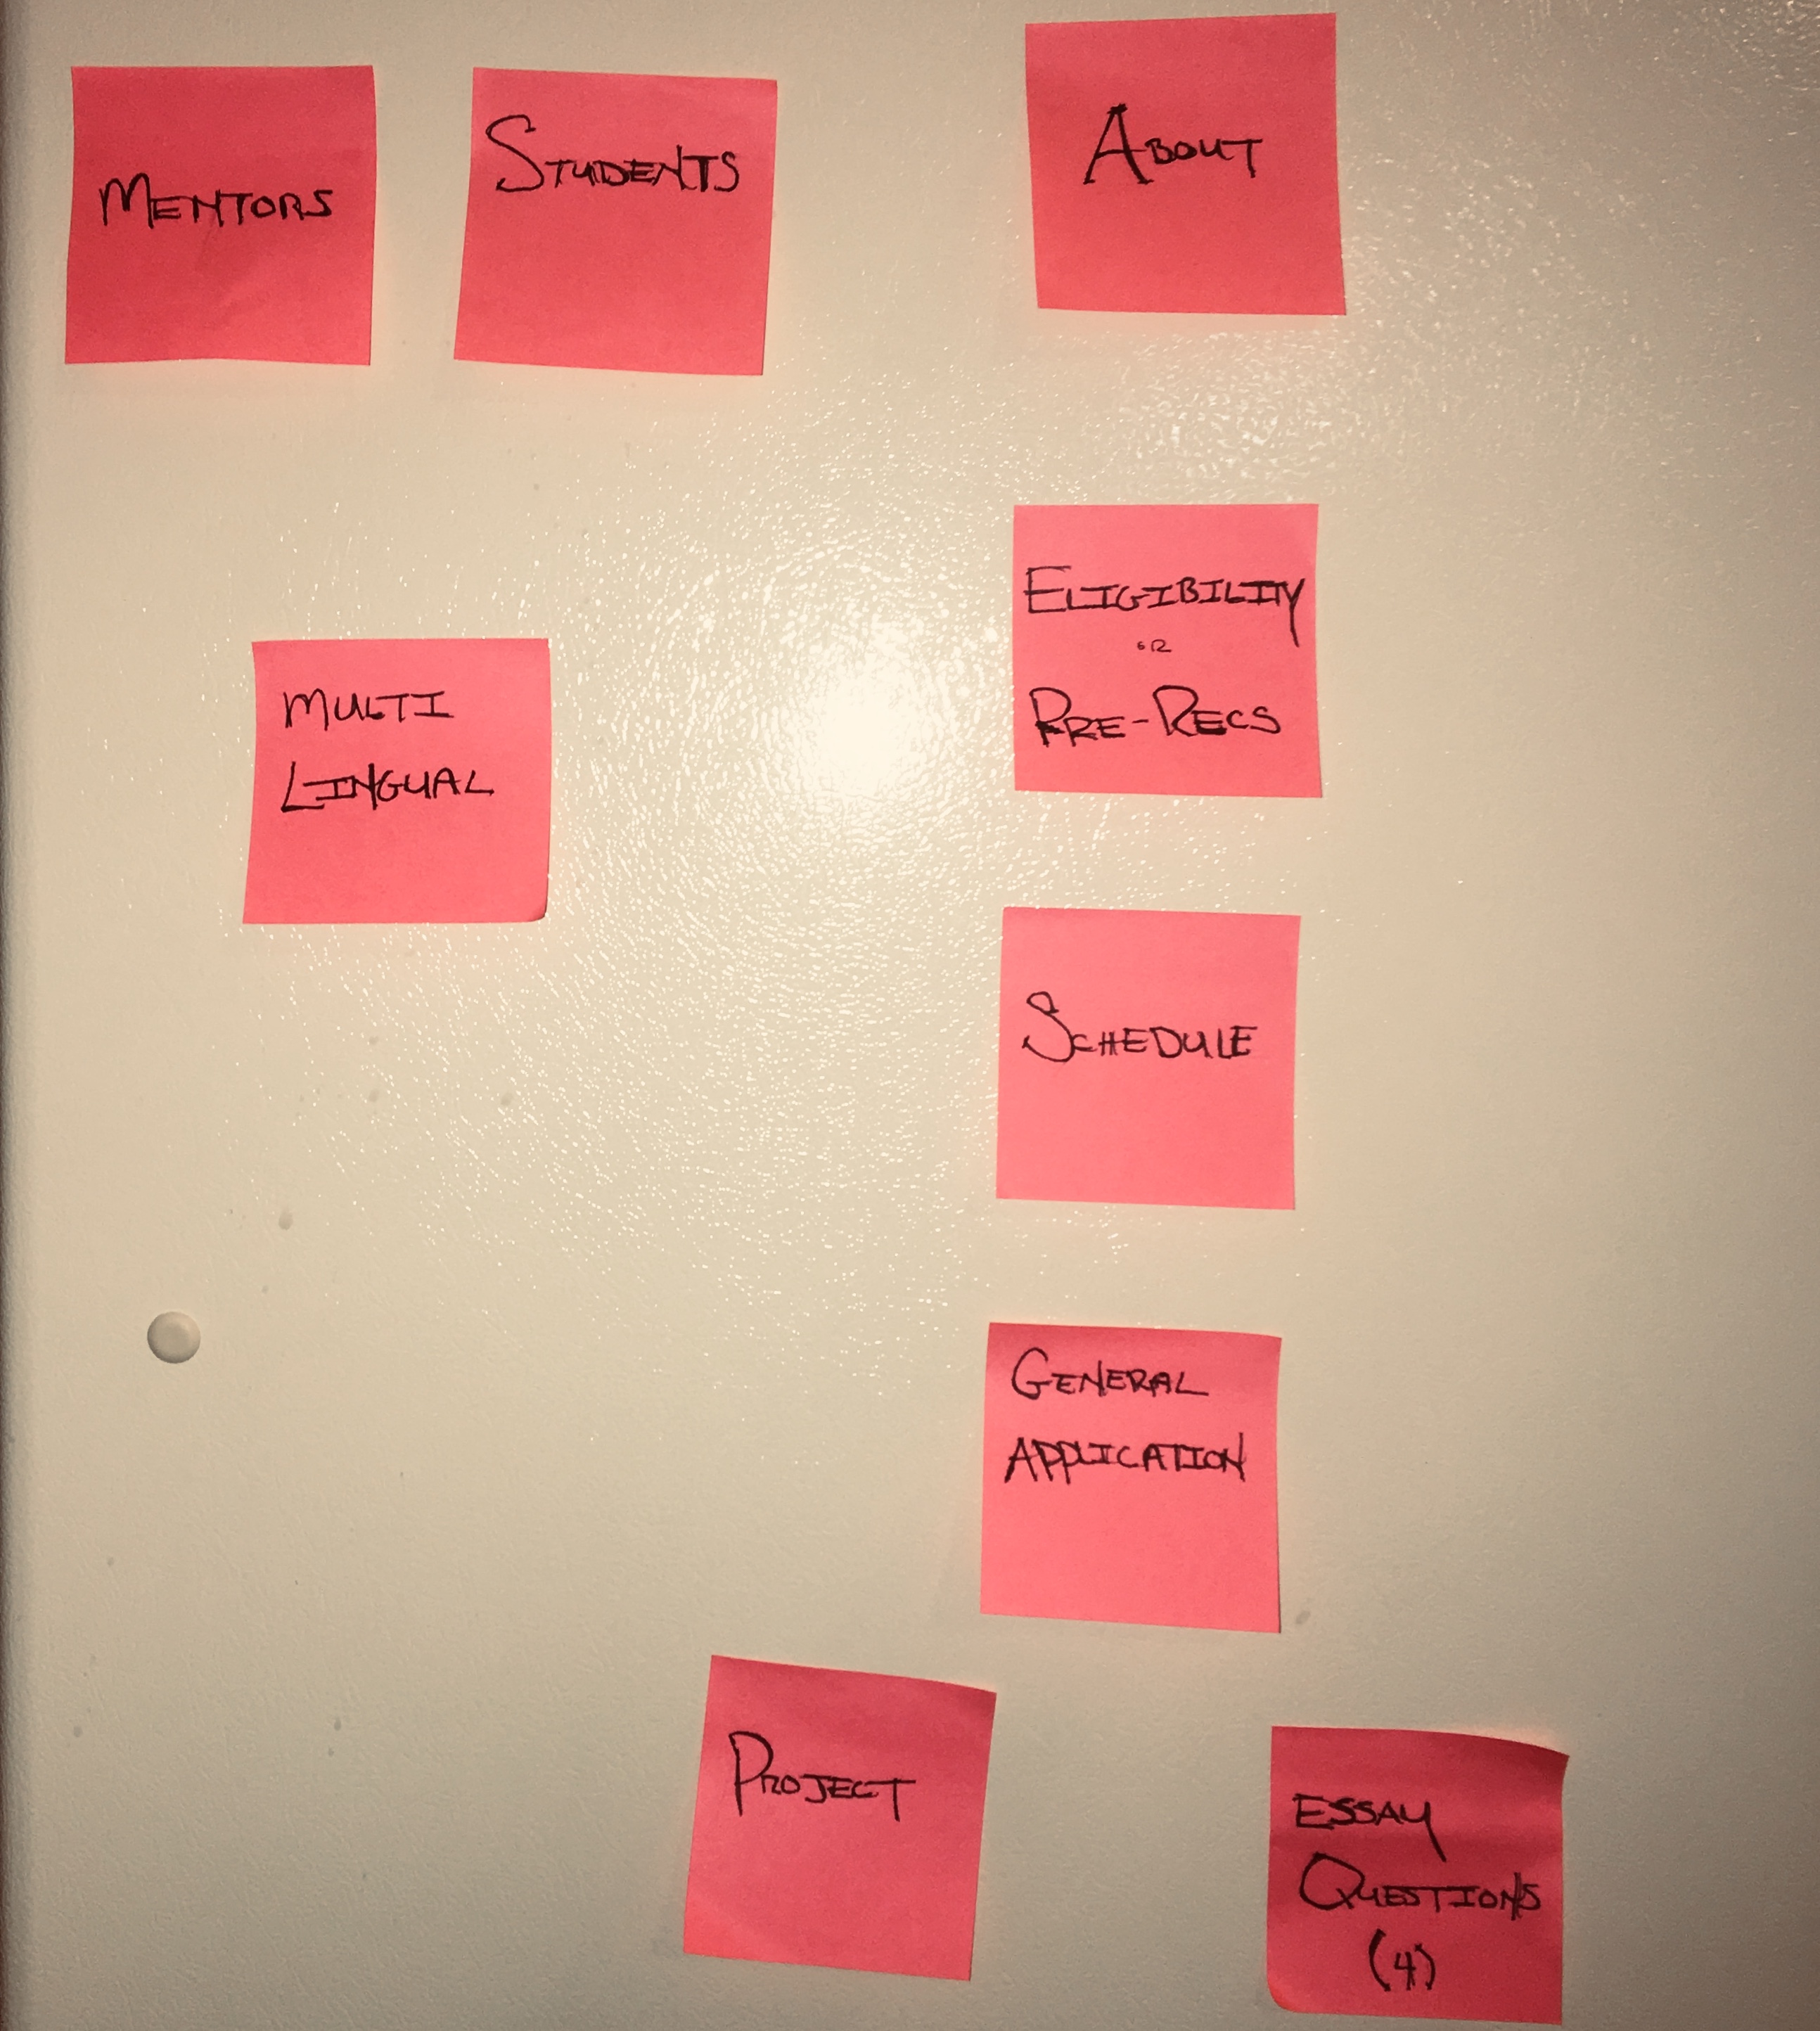 MENTORS
STUDENTS
ABOUT
MULTI
LINGUAL
ELIGIBILITY
OR
PRE-RECS
SCHEDULE
GENERAL
APPLICATION
PROJECT
ESSAY
QUESTIONS
(4)